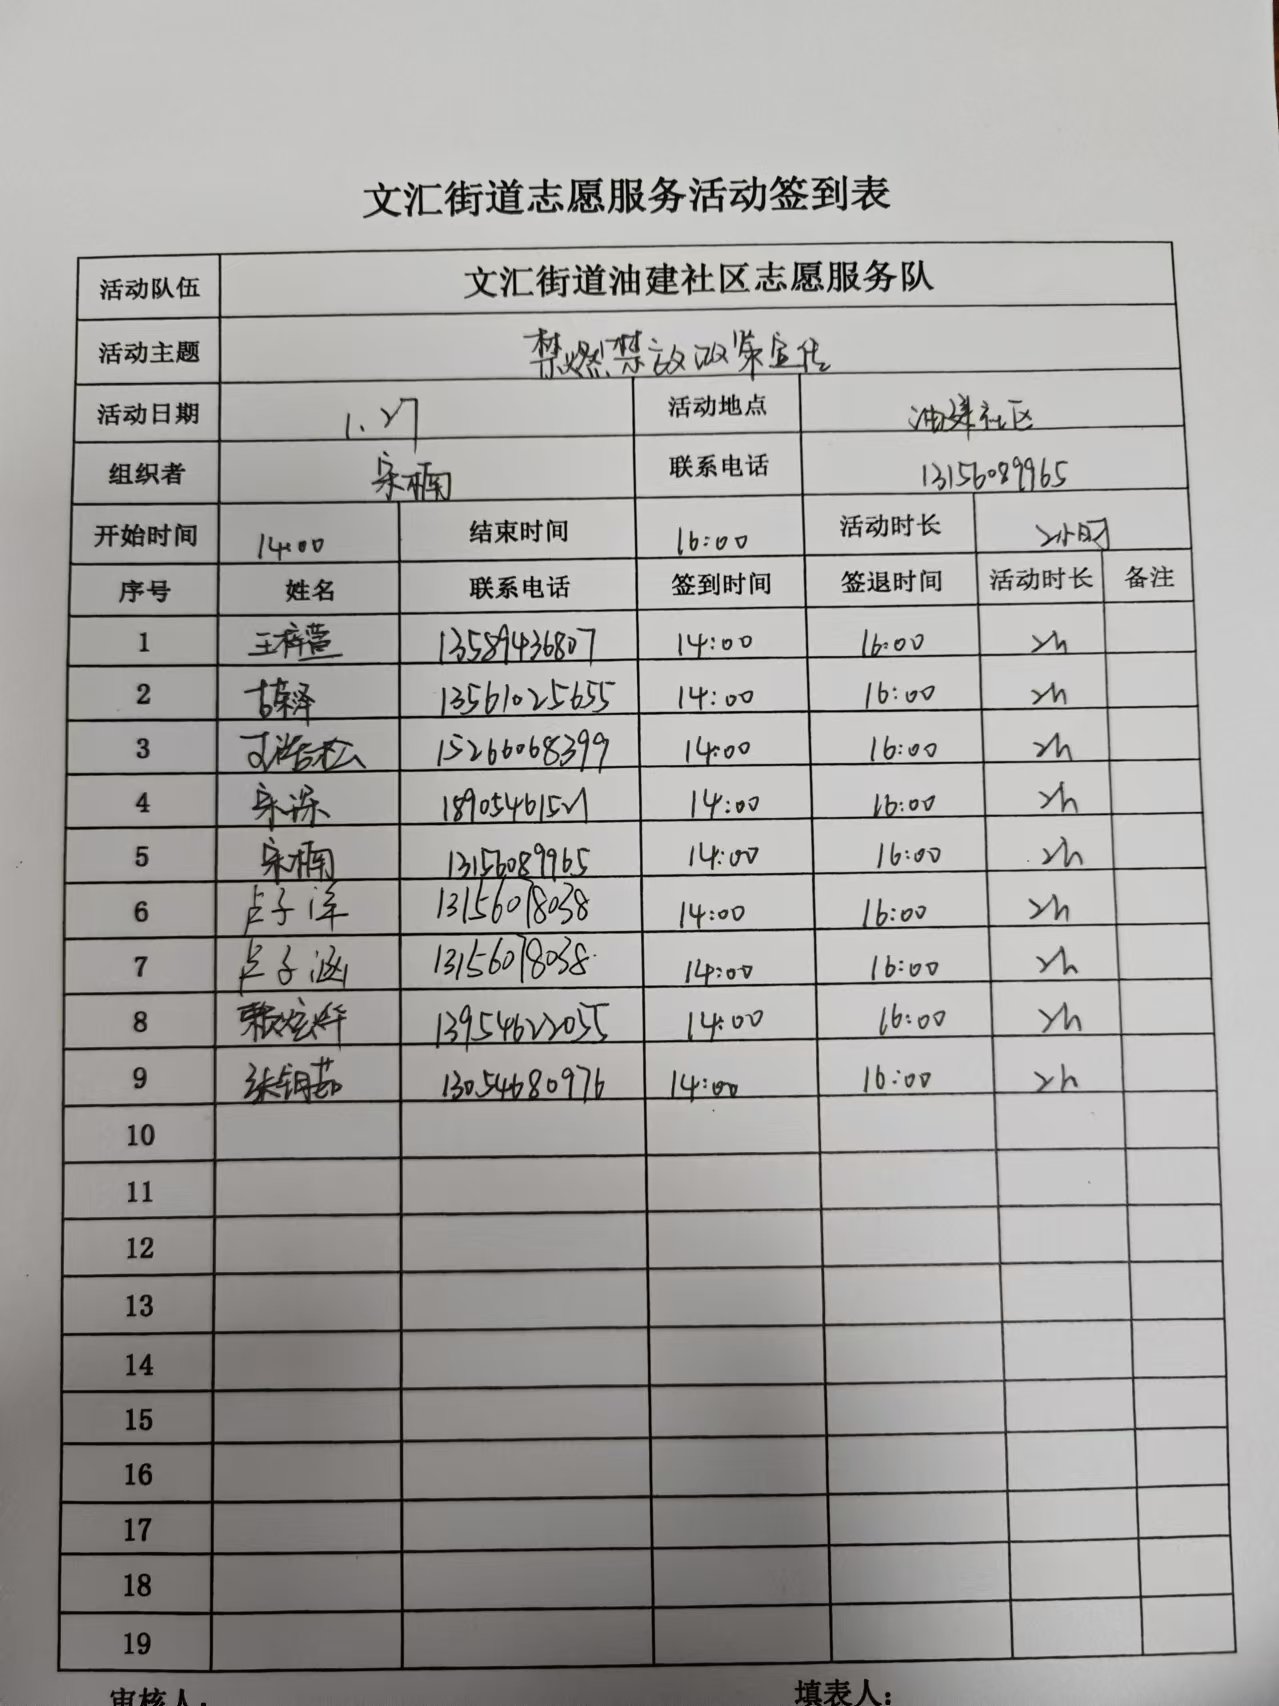 文汇街道志愿服务活动签到表
活动队伍 文汇街道油建社区志愿服务队
活动主题 禁燃禁放政策宣传
活动日期 1.27 活动地点 油建社区
组织者 宋楠 联系电话 13156089965
开始时间 14:00 结束时间 16:00 活动时长 2小时
序号 姓名 联系电话 签到时间 签退时间 活动时长 备注
1 王梓萱 13589436807 14:00 16:00 2h
2 13561025655 14:00 16:00 2h
3 15266068399 14:00 16:00 2h
4 宋深 18905461521 14:00 16:00 2h
5 宋楠 13156089965 14:00 16:00 2h
6 卢子洋 13156078038 14:00 16:00 2h
7 卢子涵 13156078038 14:00 16:00 2h
8 13954622055 14:00 16:00 2h
9 13054680976 14:00 16:00 2h
10
11
12
13
14
15
16
17
18
19
审核人: 填表人: